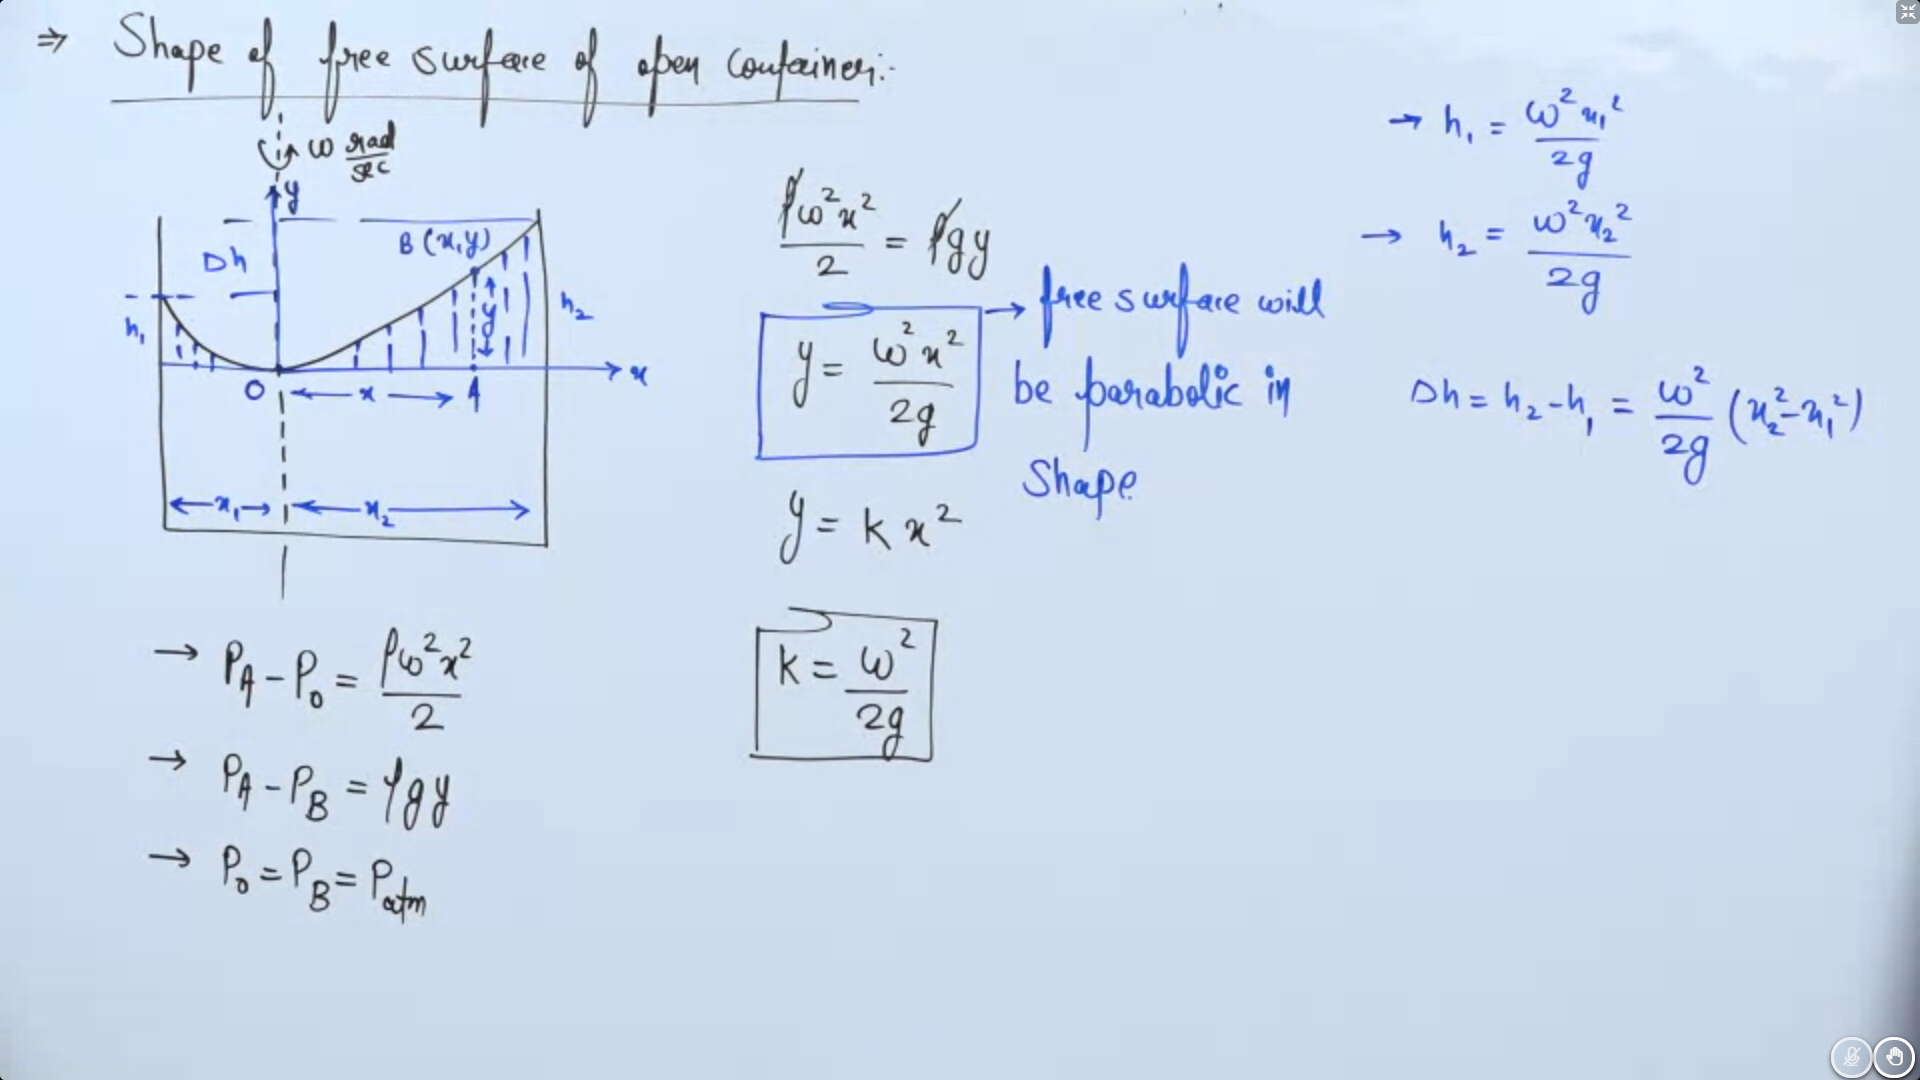 ⇒ Shape of free surface of open container:-
ω rad/sec
y
B(x,y)
Δh
h₁
y
h₂
O
x
A
x
x₁
x₂
→ P_A - P_0 = ρω²x²/2
→ P_A - P_B = ρgy
→ P_0 = P_B = P_atm
ρω²x²/2 = ρgy
y = ω²x²/2g
→ free surface will
be parabolic in
Shape
y = kx²
k = ω²/2g
→ h₁ = ω²x₁²/2g
→ h₂ = ω²x₂²/2g
Δh = h₂-h₁ = ω²/2g (x₂²-x₁²)